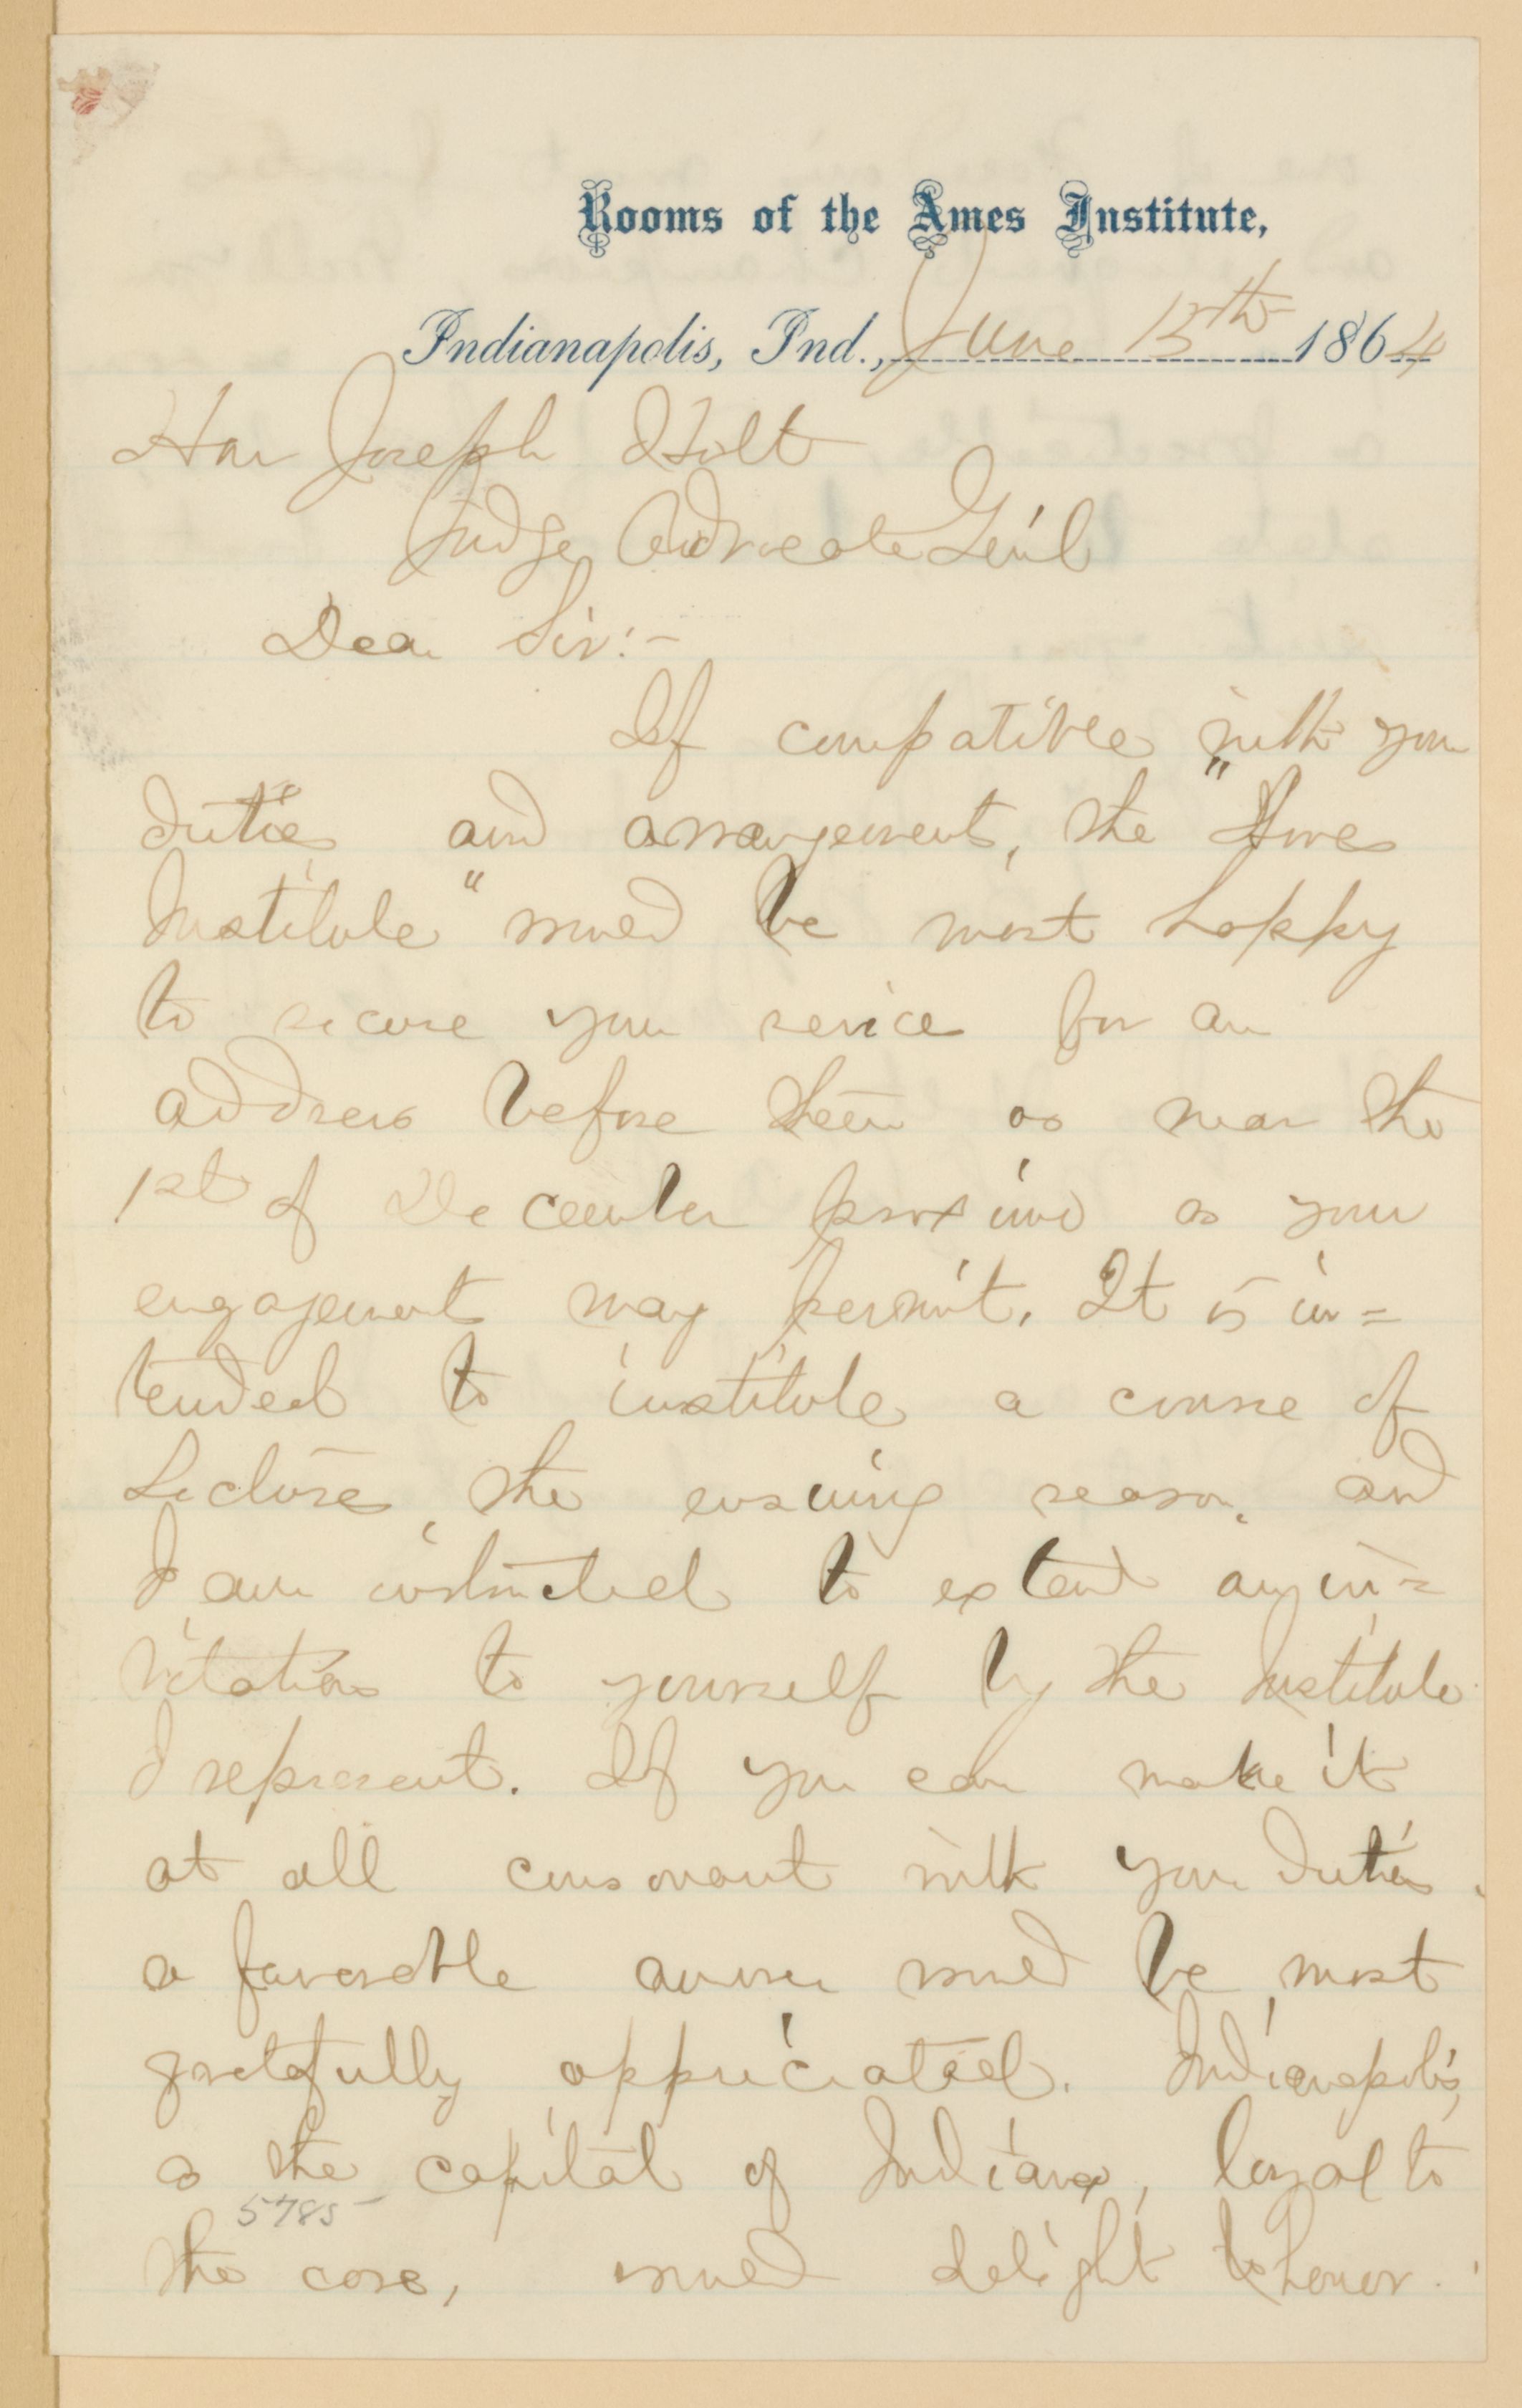 Rooms of the Ames Institute,
Indianapolis, Ind., June 15th 1864
Hon Joseph Holt
Judge Advocate Gen'l
Dear Sir:-
If compatible with your
duties and arrangements, the "Ames
Institute" would be most happy
to secure your service for an
address before them as near the
1st of December proximo as your
engagements may permit. It is in=
tended to institute a course of
Lectures, the ensuing season, and
I am instructed to extend any in=
vitation to yourself by the Institute
I represent. If you can make it
at all consonant with your duties,
a favorable answer would be most
gratefully appreciated. Indianapolis,
as the capital of Indiana, loyal to
5785
the core, would delight to honor